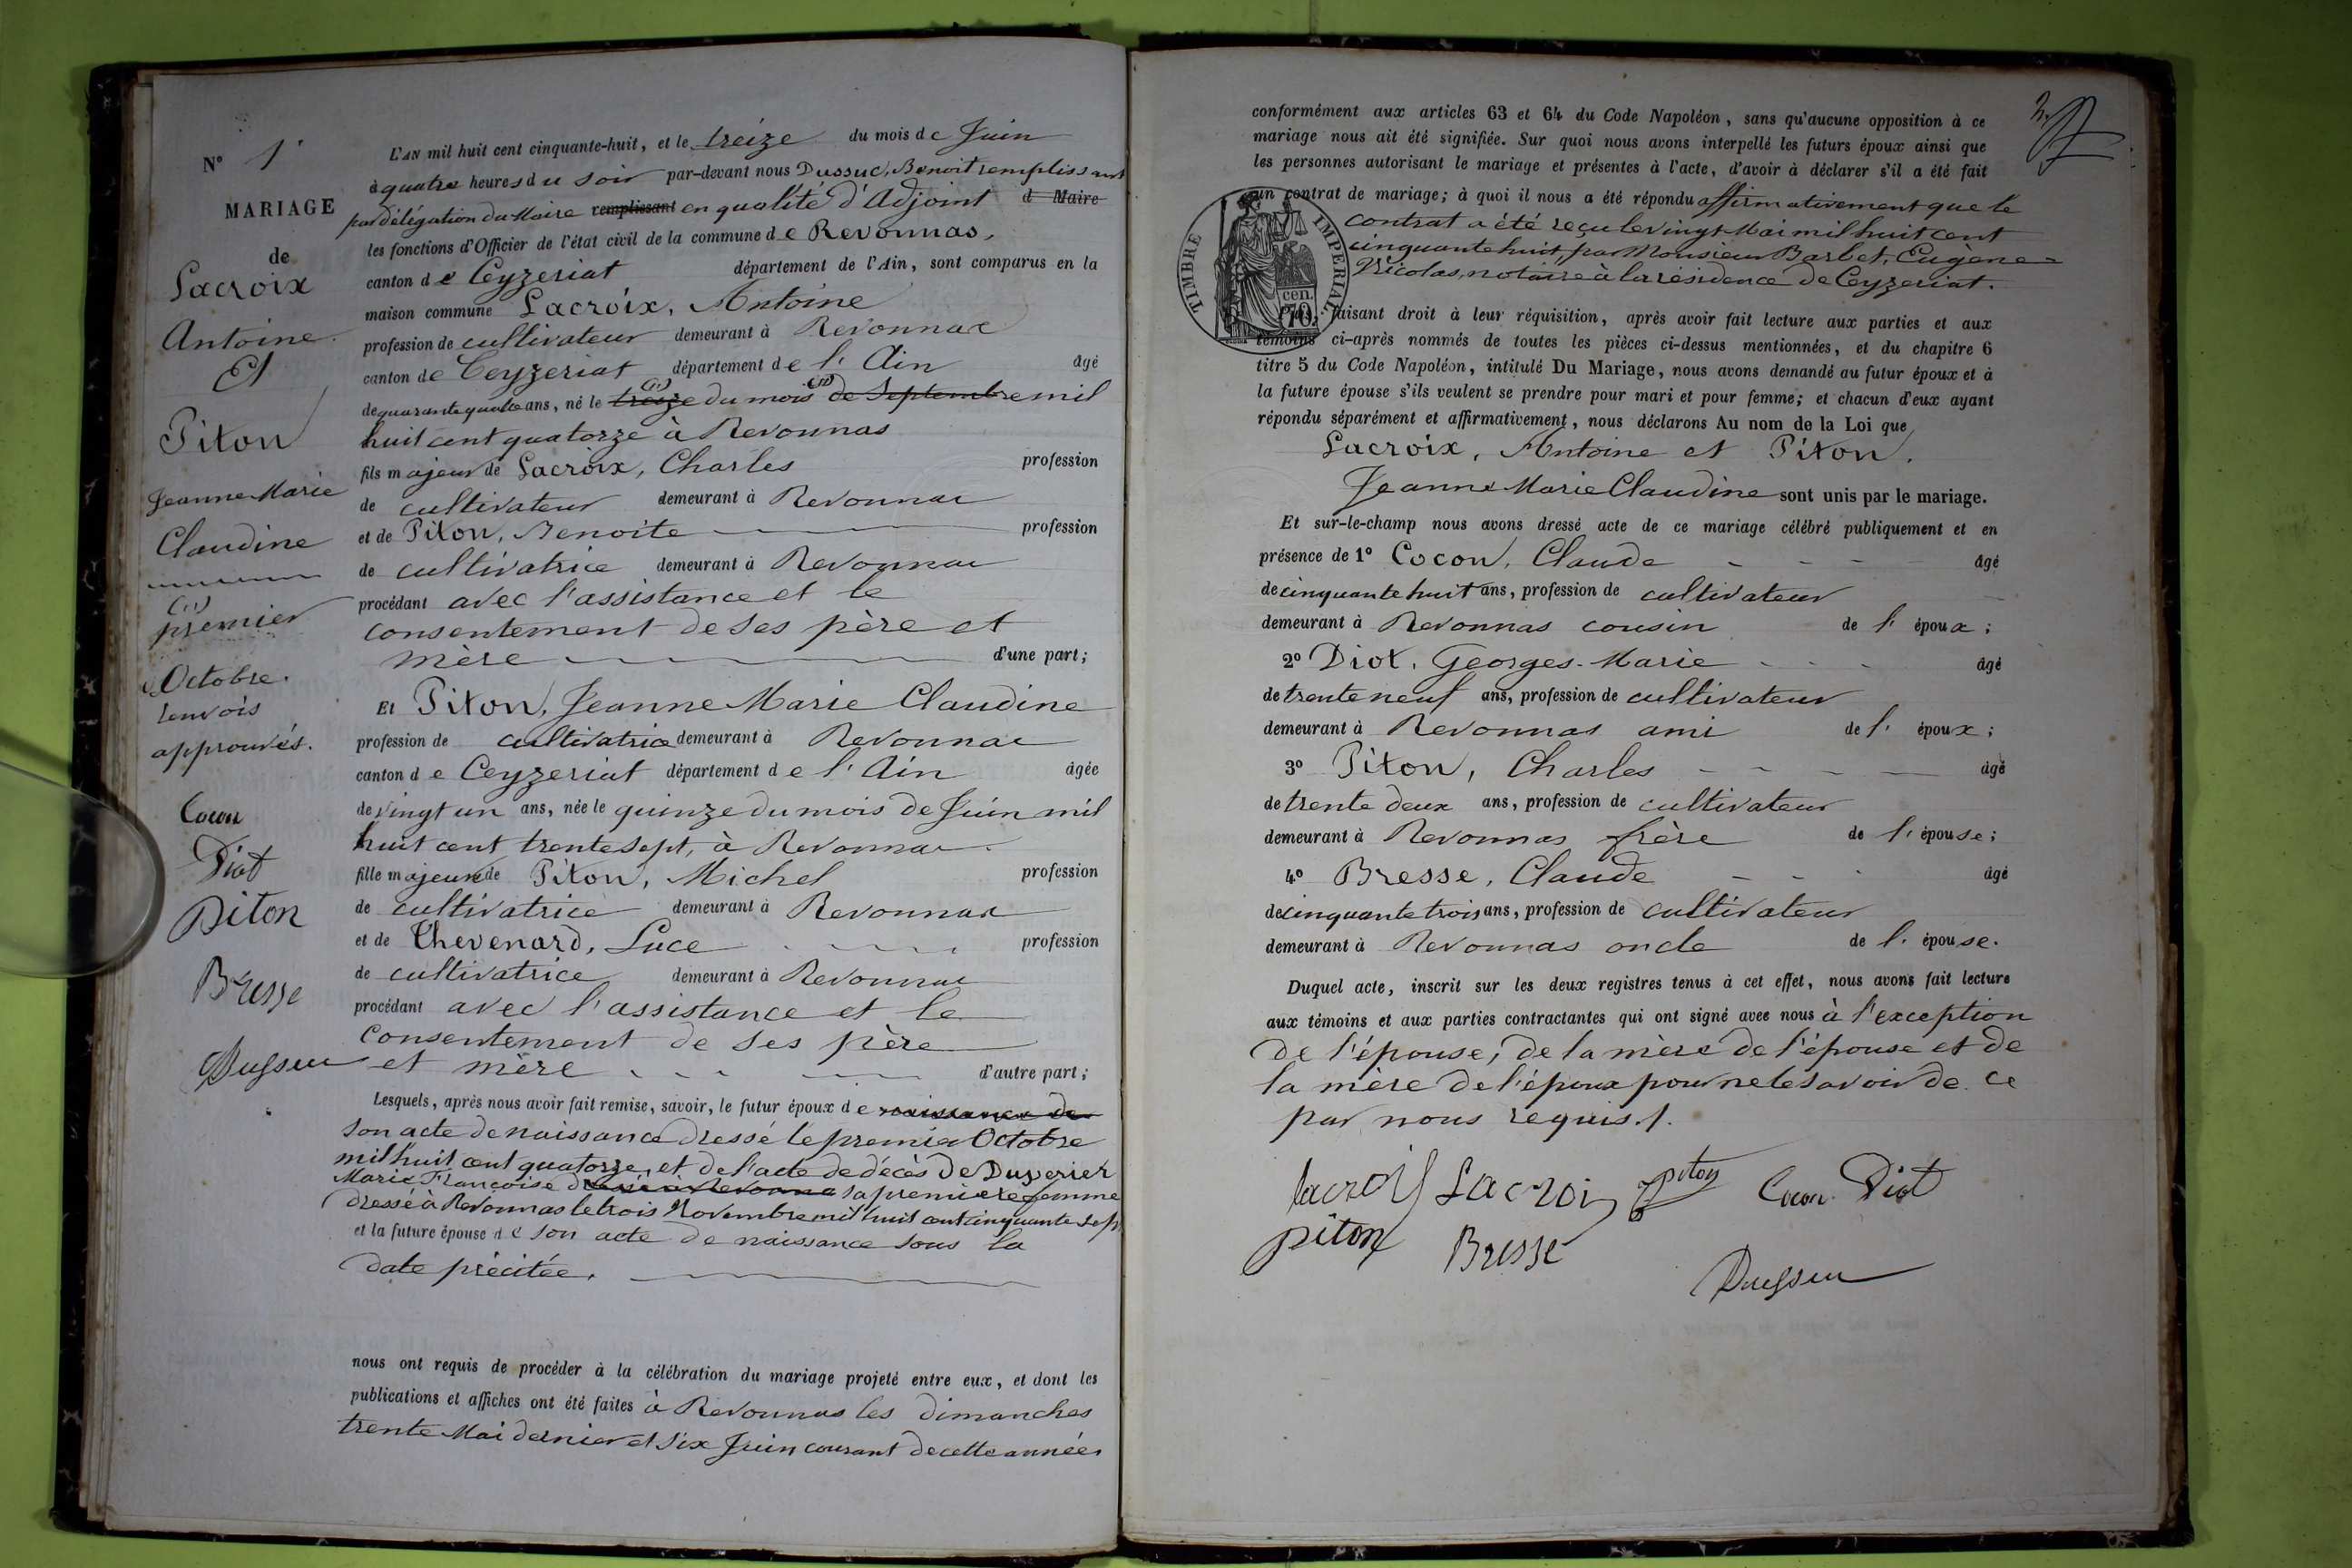 N° 1
MARIAGE
de
Lacroix
Antoine
Et
Piton
Jeanne Marie
Claudine
(1)
premier
Octobre.
renvois
approuvés.
Cocon
Diot
Piton
Bresse
Dussuc
L'AN mil huit cent cinquante-huit, et le treize du mois de Juin
à quatre heures du soir par-devant nous Dussuc, Benoit remplissant
par délégation du Maire remplissant en qualité d'Adjoint d Maire
les fonctions d'Officier de l'état civil de la commune de Revonnas,
canton de Ceyzeriat département de l'Ain, sont comparus en la
maison commune Lacroix, Antoine
profession de cultivateur demeurant à Revonnas
canton de Ceyzeriat département de l'Ain âgé
de quarante quatre ans, né le treize du mois de Septembre mil
huit cent quatorze à Revonnas
fils majeur de Lacroix, Charles profession
de cultivateur demeurant à Revonnas
et de Piton, Benoite profession
de cultivatrice demeurant à Revonnas
procédant avec l'assistance et le
consentement de ses père et
mère d'une part;
Et Piton, Jeanne Marie Claudine
profession de cultivatrice demeurant à Revonnas
canton de Ceyzeriat département de l'Ain âgée
de vingt un ans, née le quinze du mois de Juin mil
huit cent trente sept, à Revonnas.
fille majeure de Piton, Michel profession
de cultivatrice demeurant à Revonnas
et de Thevenard, Luce profession
de cultivatrice demeurant à Revonnas
procédant avec l'assistance et le
consentement de ses père
et mère d'autre part;
Lesquels, après nous avoir fait remise, savoir, le futur époux de naissance de
son acte de naissance dressé le premier Octobre
mil huit cent quatorze, et de l'acte de décès de Duverier
Marie Françoise sa première femme
dressé à Revonnas le trois Novembre mil huit cent cinquante sept
et la future épouse de son acte de naissance sous la
date précitée.
nous ont requis de procéder à la célébration du mariage projeté entre eux, et dont les
publications et affiches ont été faites à Revonnas les dimanches
trente Mai dernier et six Juin courant de cette année
conformément aux articles 63 et 64 du Code Napoléon, sans qu'aucune opposition à ce
mariage nous ait été signifiée. Sur quoi nous avons interpellé les futurs époux ainsi que
les personnes autorisant le mariage et présentes à l'acte, d'avoir à déclarer s'il a été fait
un contrat de mariage; à quoi il nous a été répondu affirmativement que le
contrat a été reçu le vingt Mai mil huit cent
cinquante huit, par Monsieur Barbet, Eugène=
Nicolas, notaire à la résidence de Ceyzeriat.
TIMBRE IMPERIAL
cen. 70
faisant droit à leur réquisition, après avoir fait lecture aux parties et aux
témoins ci-après nommés de toutes les pièces ci-dessus mentionnées, et du chapitre 6
titre 5 du Code Napoléon, intitulé Du Mariage, nous avons demandé au futur époux et à
la future épouse s'ils veulent se prendre pour mari et pour femme; et chacun d'eux ayant
répondu séparément et affirmativement, nous déclarons Au nom de la Loi que
Lacroix, Antoine et Piton,
Jeanne Marie Claudine sont unis par le mariage.
Et sur-le-champ nous avons dressé acte de ce mariage célébré publiquement et en
présence de 1° Cocon, Claude âgé
de cinquante huit ans, profession de cultivateur
demeurant à Revonnas cousin de l'époux;
2° Diot, Georges-Marie âgé
de trente neuf ans, profession de cultivateur
demeurant à Revonnas ami de l'époux;
3° Piton, Charles âgé
de trente deux ans, profession de cultivateur
demeurant à Revonnas frère de l'épouse;
4° Bresse, Claude âgé
de cinquante trois ans, profession de cultivateur
demeurant à Revonnas oncle de l'épouse.
Duquel acte, inscrit sur les deux registres tenus à cet effet, nous avons fait lecture
aux témoins et aux parties contractantes qui ont signé avec nous à l'exception
de l'épouse, de la mère de l'épouse et de
la mère de l'époux pour ne le savoir de ce
par nous requis./.
Lacroix Lacroix Piton Cocon Diot
piton Bresse
Dussuc